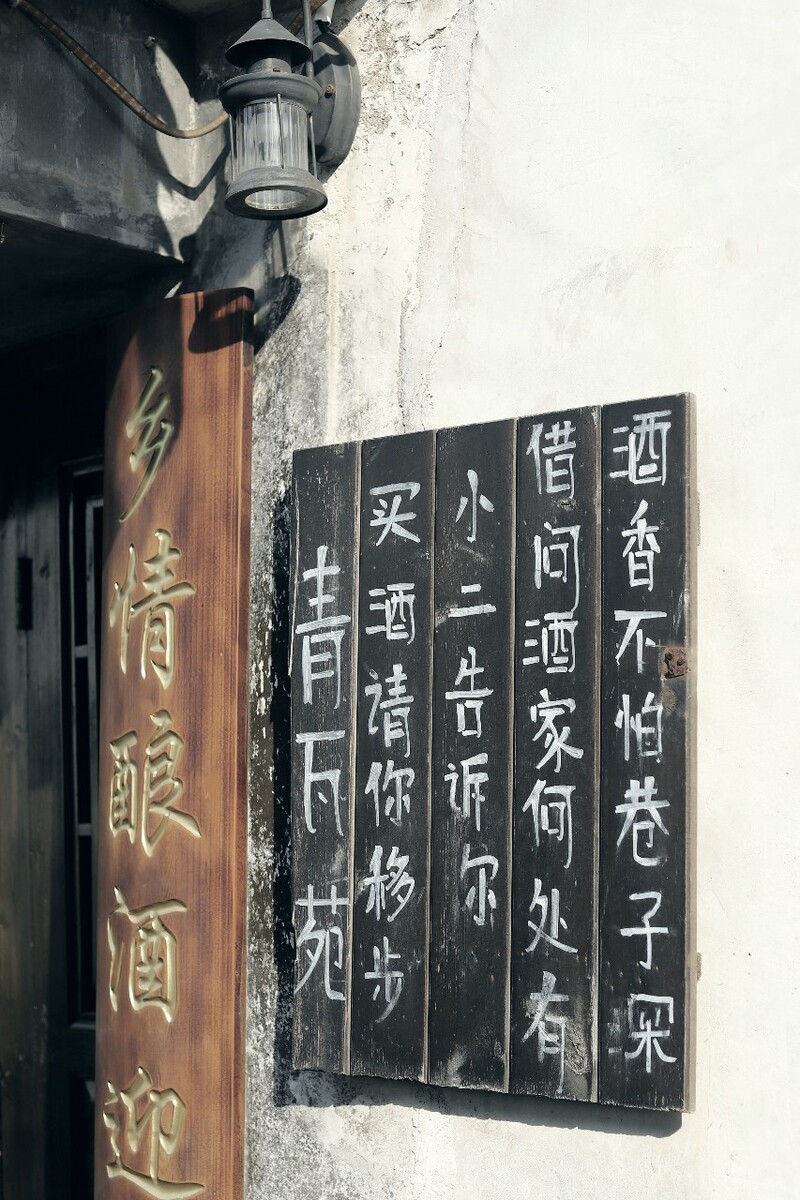 酒香不怕巷子深
借问酒家何处有
小二告诉尔
买酒请你移步
青瓦苑
乡情酿酒迎